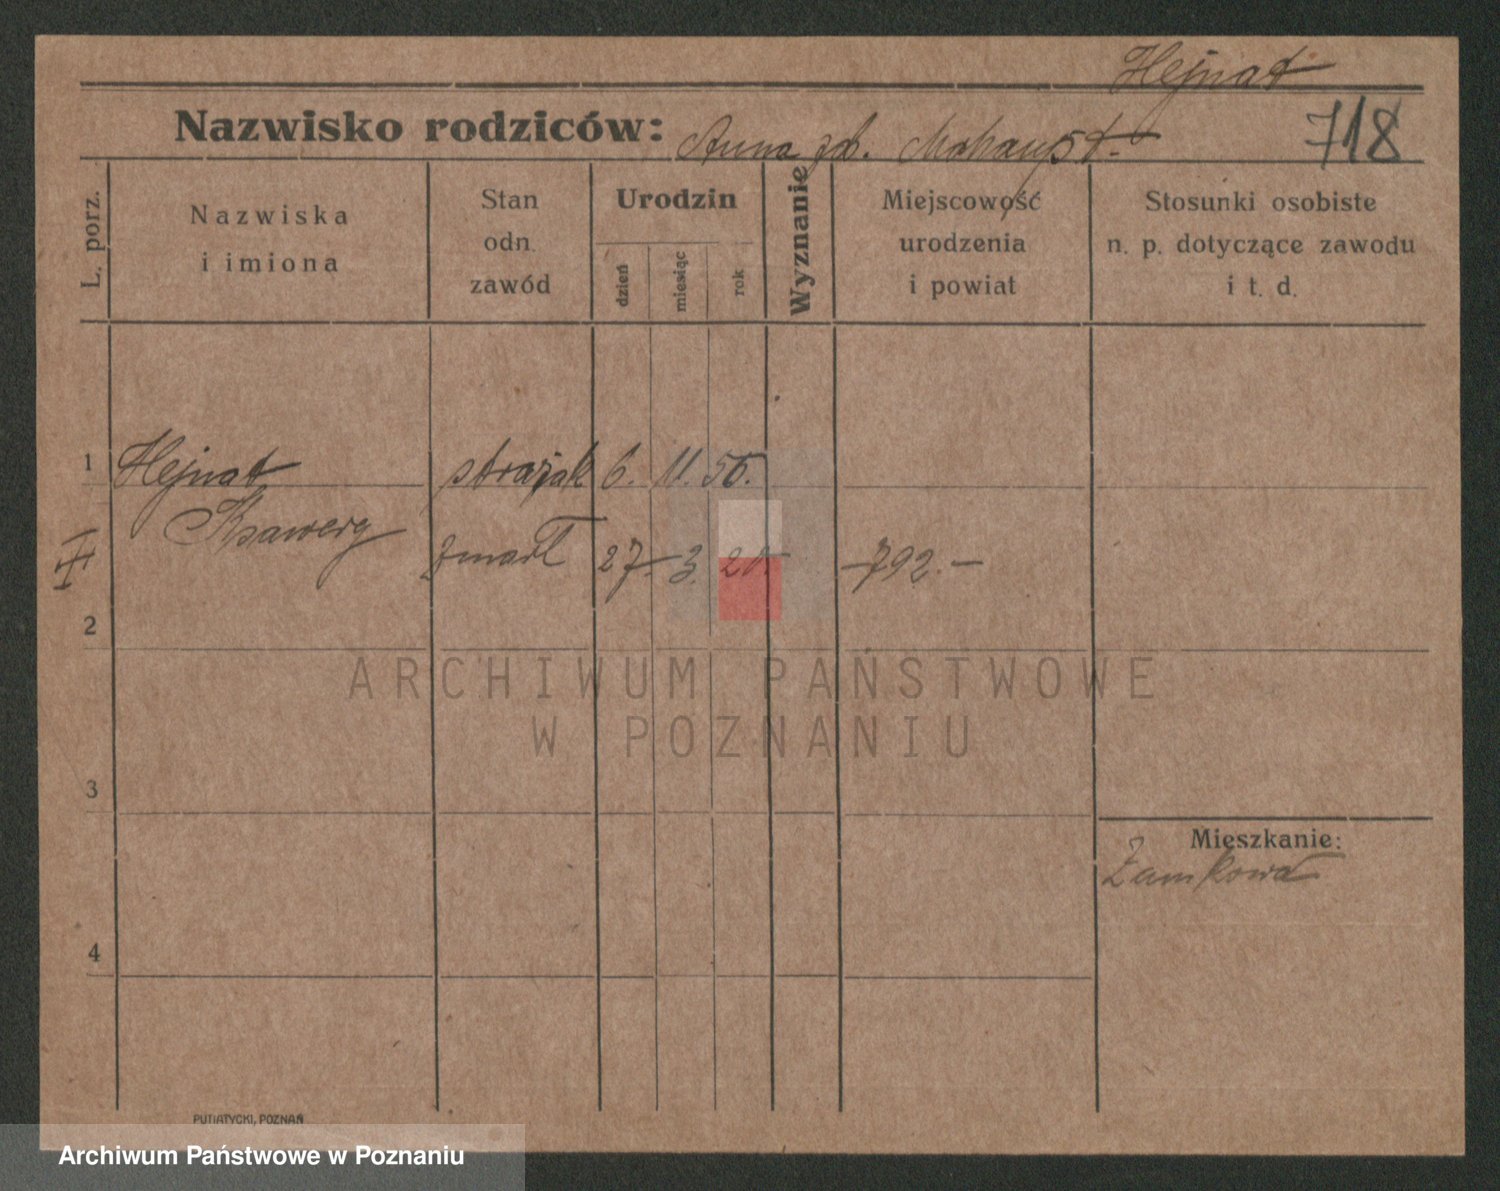 Hejnat
Nazwisko rodziców: Anna zd. 718
L. porz.
Nazwiska i imiona
Stan odn. zawód
Urodzin
dzień
miesiąc
rok
Wyznanie
Miejscowość urodzenia i powiat
Stosunki osobiste n. p. dotyczące zawodu i t. d.
1 Hejnat strażak 6. 11. 56.
Ksawery
zmarł 27 3. -792.-
2
3
Mieszkanie:
Zamkowa
4
PUTIATYCKI, POZNAŃ
ARCHIWUM PAŃSTWOWE
W POZNANIU
Archiwum Państwowe w Poznaniu